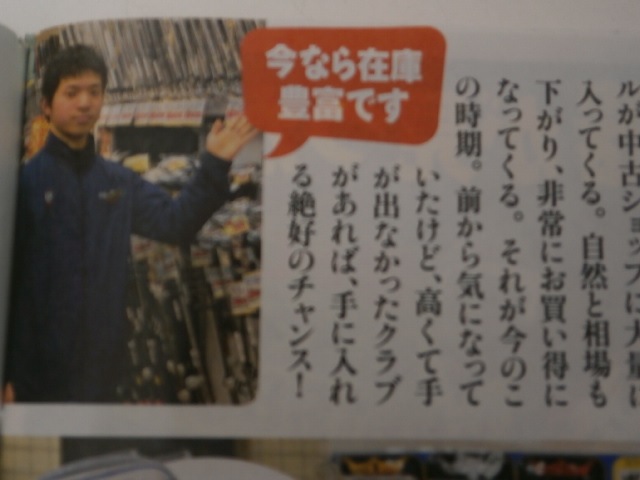 今なら在庫
豊富です
ルが中古ショップに大量に
入ってくる。自然と相場も
下がり、非常にお買い得に
なってくる。それが今のこ
の時期。前から気になって
いたけど、高くて手
が出なかったクラブ
があれば、手に入れ
る絶好のチャンス！